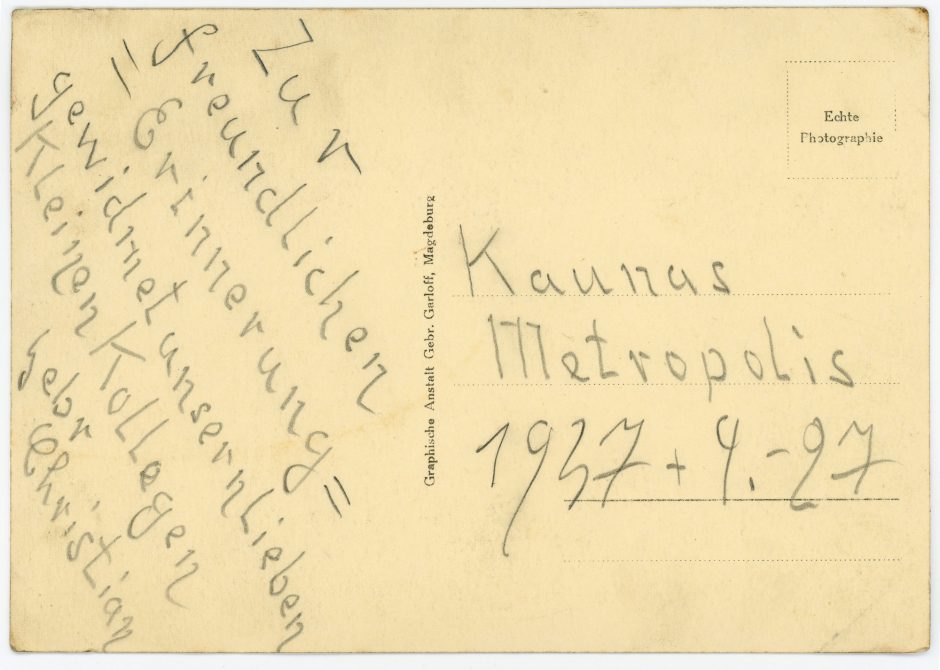 Zur
freundlichen
"Erinnerung"
gewidmet unsern Lieben
Kleinen Kollegen
Gebr
Christian
Graphische Anstalt Gebr. Garloff, Magdeburg
Echte
Photographie
Kaunas
Metropolis
1937 + 4.-27